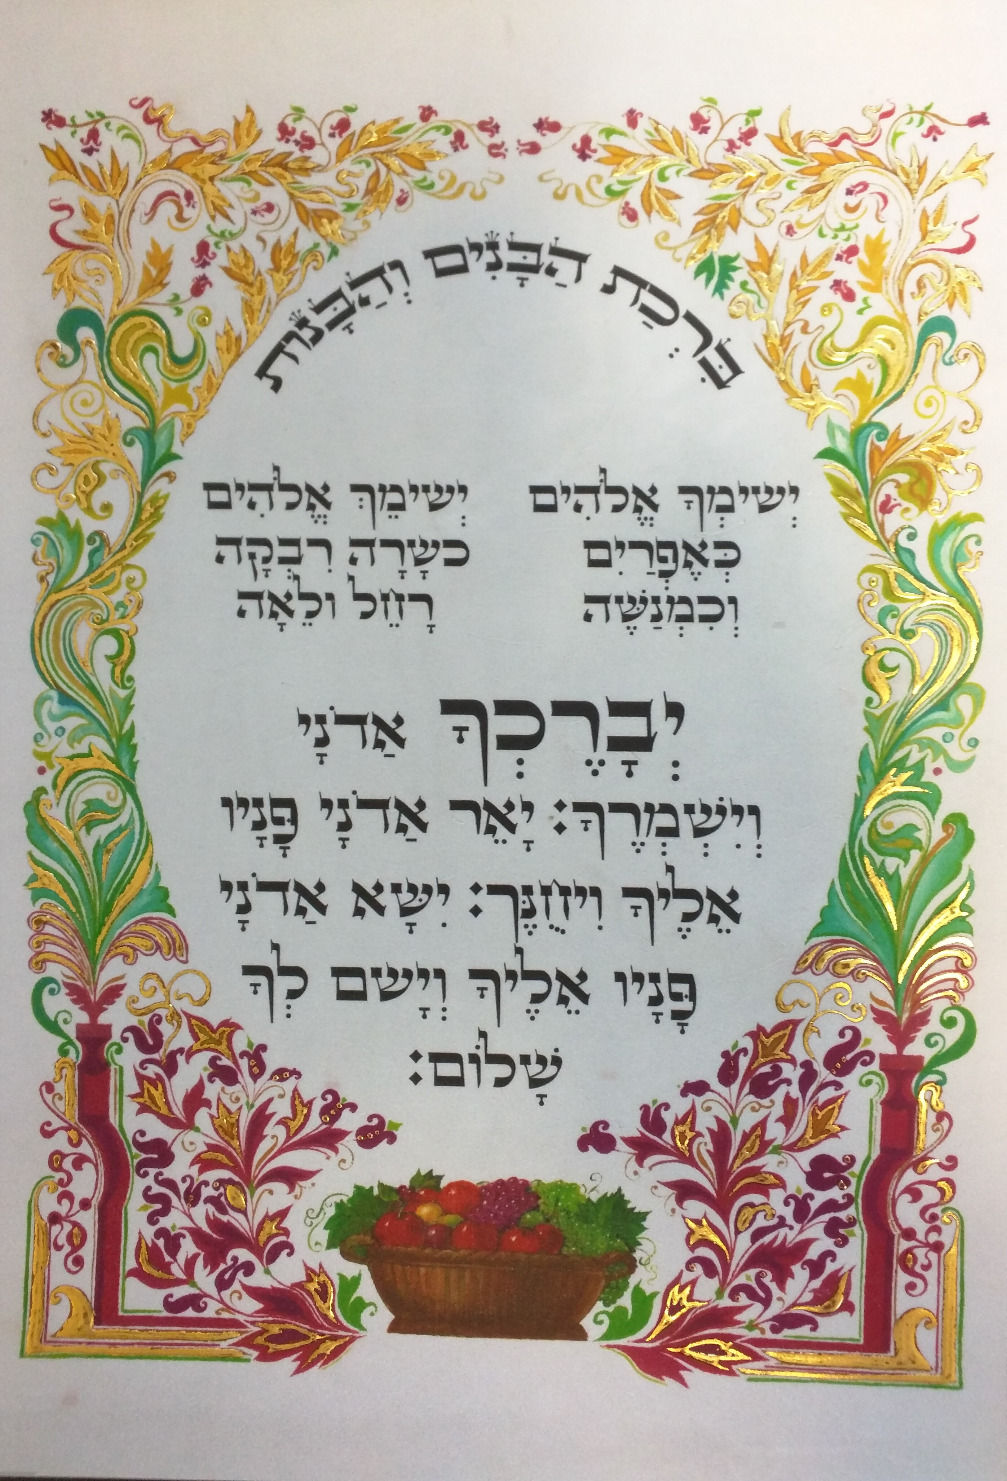 בִּרְכַּת הַבָּנִים וְהַבָּנוֹת
יְשִׂימְךָ אֱלֹהִים
כְּאֶפְרַיִם
וְכִמְנַשֶּׁה
יְשִׂימֵךְ אֱלֹהִים
כשָׂרָה רִבְקָה
רָחֵל ולֵאָה
יְבָרֶכְךָ אַדֹנָי
וְיִשְׁמְרֶךָ: יָאֵר אַדֹנָי פָּנָיו
אֵלֶיךָ וִיחֻנֶּךָּ: יִשָּׂא אַדֹנָי
פָּנָיו אֵלֶיךָ וְיָשֵם לְךָ
שָׁלוֹם: